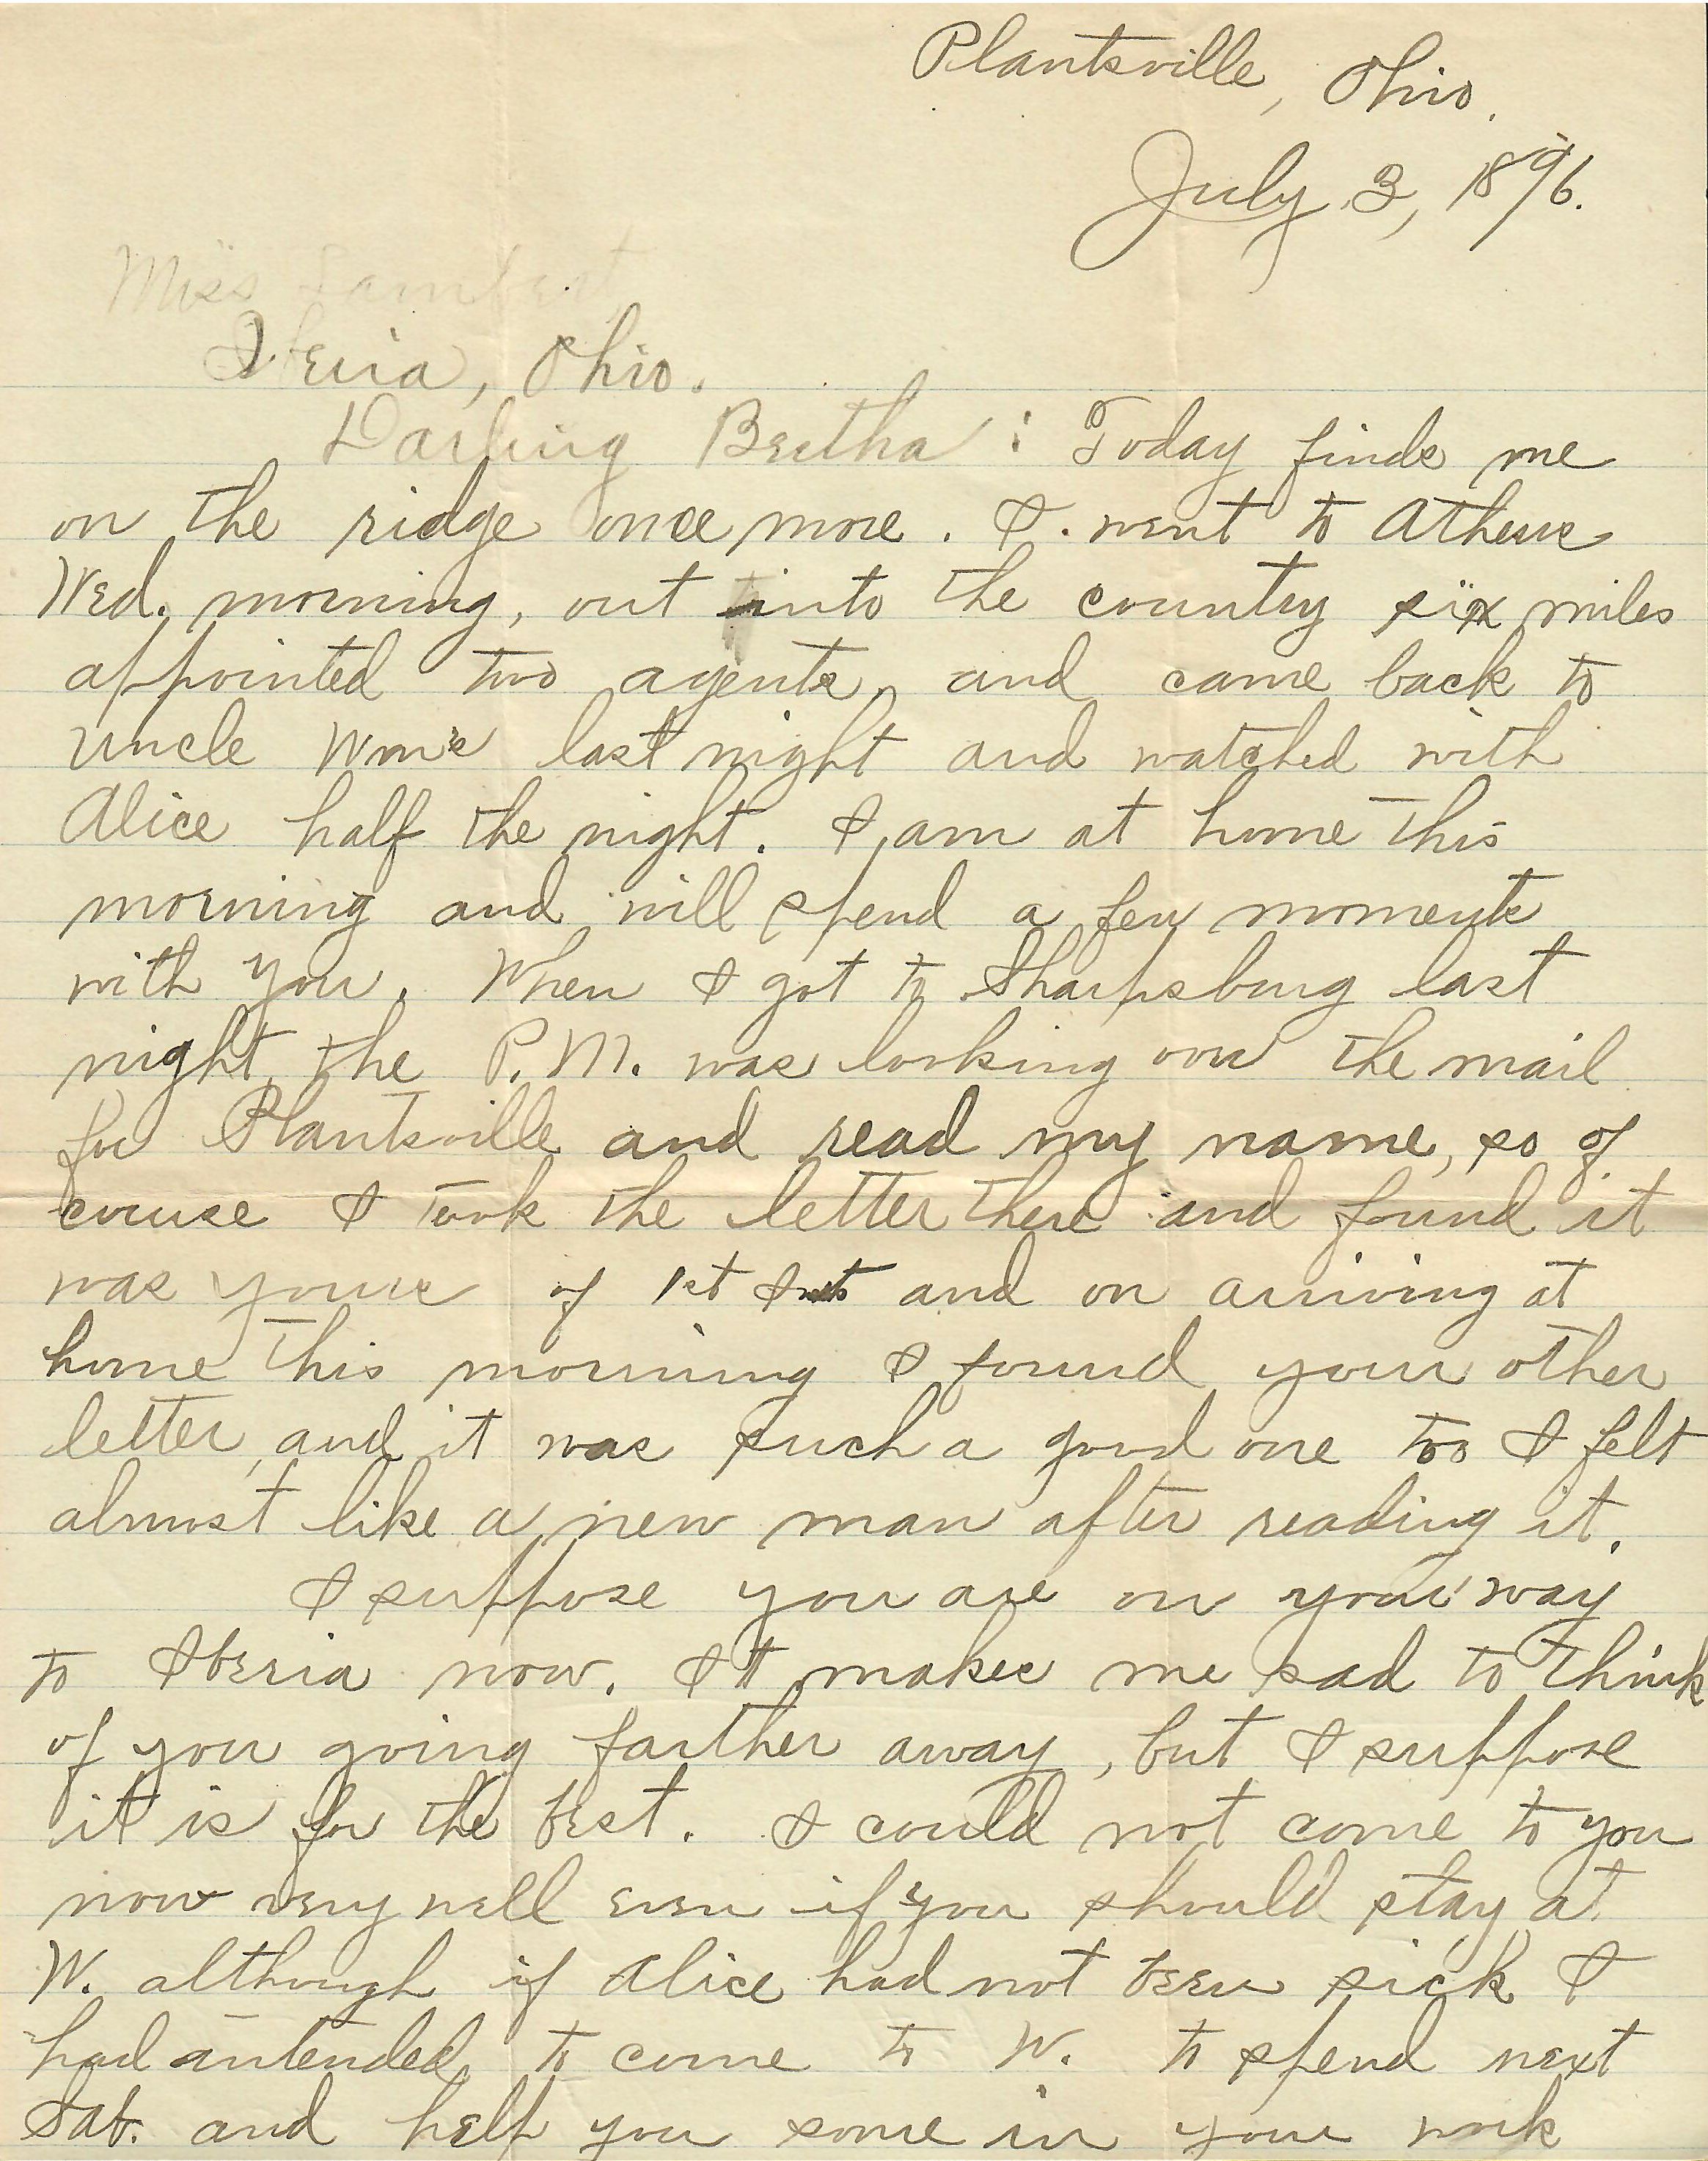 Plantsville, Ohio.
July 3, 1896.
Miss Lambert,
Iberia, Ohio.
Darling Bertha: Today finds me
on the ridge once more. I went to Athens
Wed. morning, out into the country six miles
appointed two agents, and came back to
Uncle Wm's last night and watched with
Alice half the night. I am at home this
morning and will spend a few moments
with you. When I got to Sharpsburg last
night, the P.M. was looking over the mail
for Plantsville and read my name, so of
course I took the letter there and found it
was yours of 1st Inst and on arriving at
home this morning I found your other
letter, and it was such a good one too I felt
almost like a new man after reading it.
I suppose you are on your way
to Iberia now. It makes me sad to think
of you going farther away, but I suppose
it is for the best. I could not come to you
now very well even if you should stay at
W. although if Alice had not been sick I
had intended to come to W. to spend next
Sab. and help you some in your work